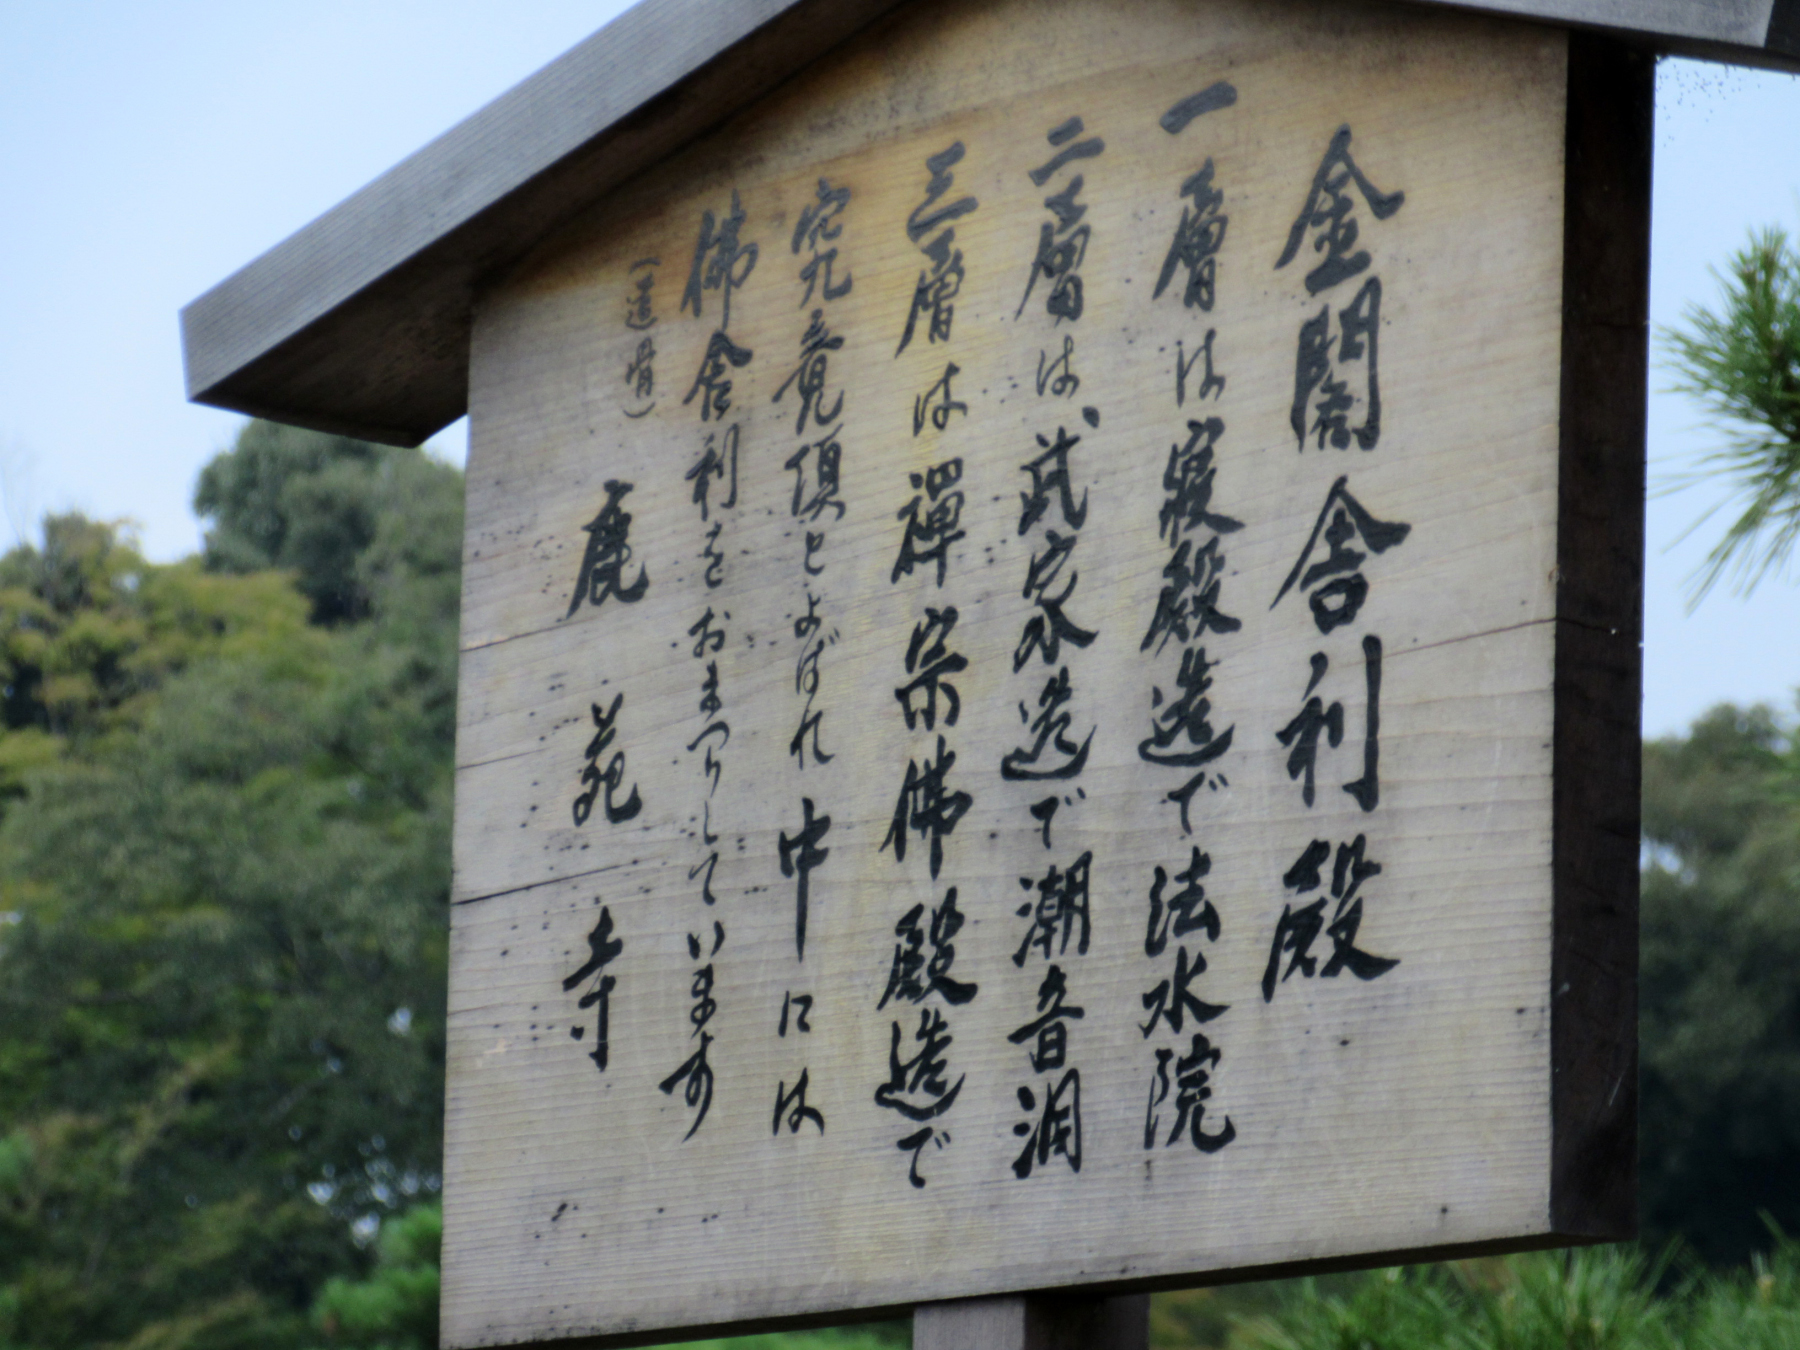 金閣舎利殿
一層は寝殿造で法水院
二層は武家造で潮音洞
三層は禪宗佛殿造で
究竟頂とよばれ中には
佛舎利をおまつりしています
(遺骨)
鹿苑寺